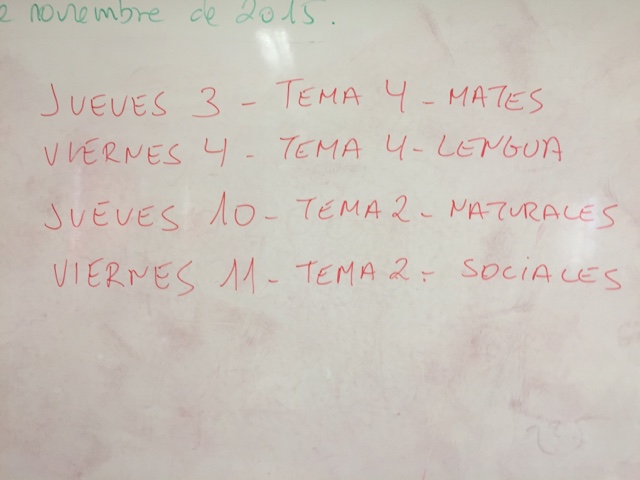 noviembre de 2015.
JUEVES 3 - TEMA 4 - MATES
VIERNES 4 - TEMA 4 - LENGUA
JUEVES 10 - TEMA 2 - NATURALES
VIERNES 11 - TEMA 2 - SOCIALES